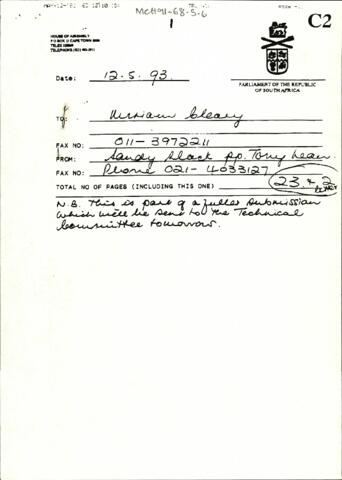 MCH91-68-5-6
1
C2
HOUSE OF ASSEMBLY
PO BOX 15 CAPETOWN 8000
PARLIAMENT OF THE REPUBLIC
OF SOUTH AFRICA
Date: 12.5.93.
TO: Cleary
FAX NO: 011-3972211
FROM: Sandy Slack p.p. Tony Leon
FAX NO: Phone 021-4033127
TOTAL NO OF PAGES (INCLUDING THIS ONE) 23 + 2
N.B. This is part of a fuller submission
which will be sent to the Technical
Committee tomorrow.